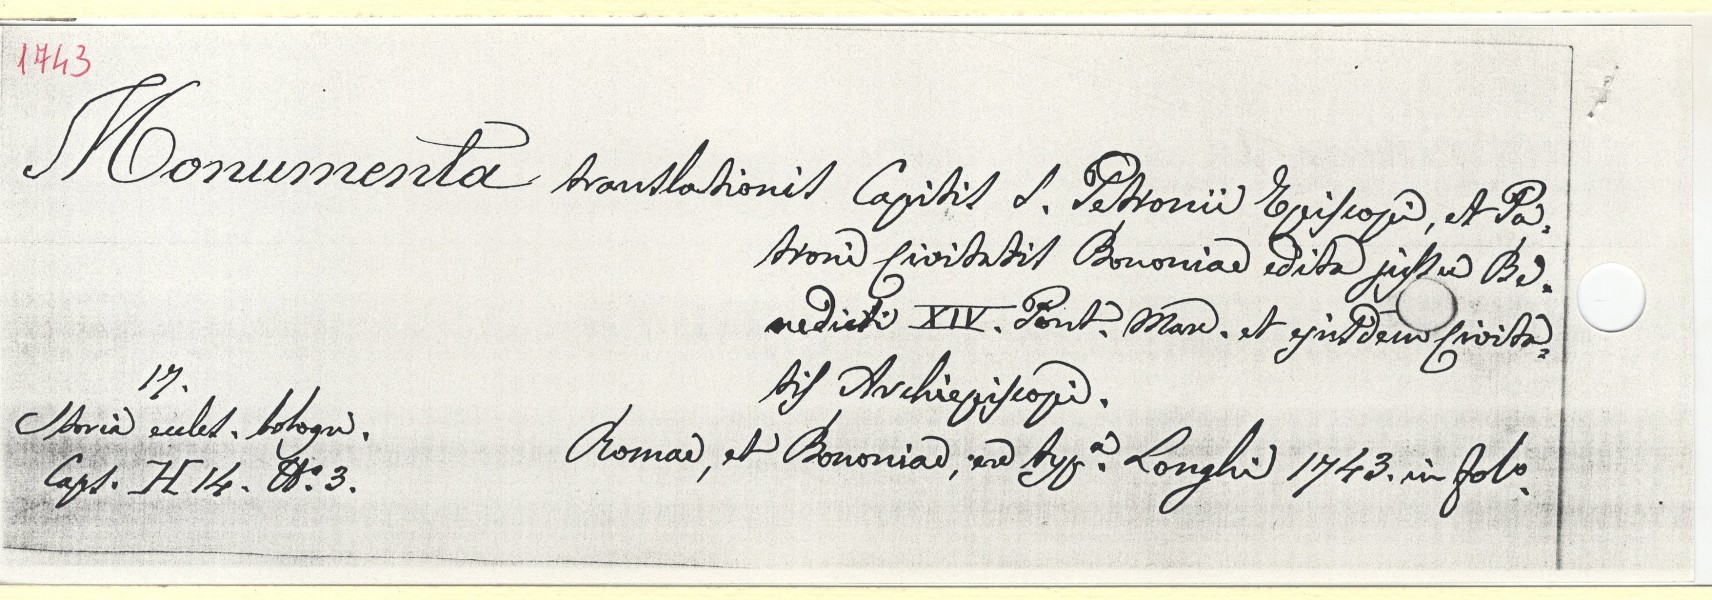 1743
Monumenta translationis Capitis S. Petronii Episcopi, et Pa-
troni Civitatis Bononiae edita jussu Be-
nedicti XIV. Pont. Max. et ejusdem Civita-
tis Archiepiscopi.
Romae, et Bononiae, ex typ.a Longhi 1743. in fol.o
17.
Storia eccles. bologn.
Caps. H 14. N.o 3.